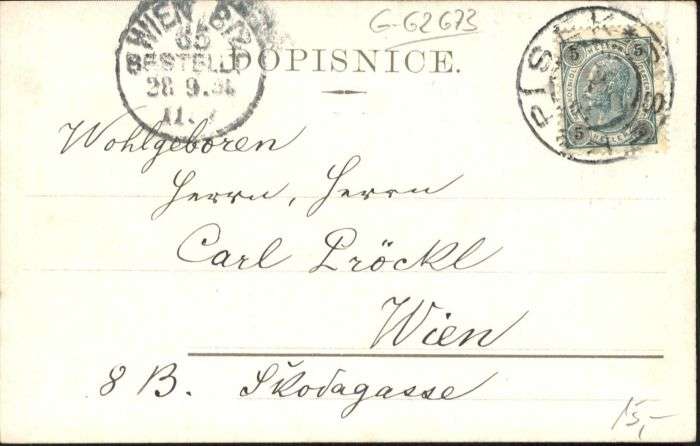 G-62673
WIEN 8/2
BESTELLT
28.9.
11.
PISEK
5 5
5 5
DOPISNICE.
Wohlgeboren
Herrn, Herrn
Carl Pröckl
Wien
8 B. Škodagasse
15,-